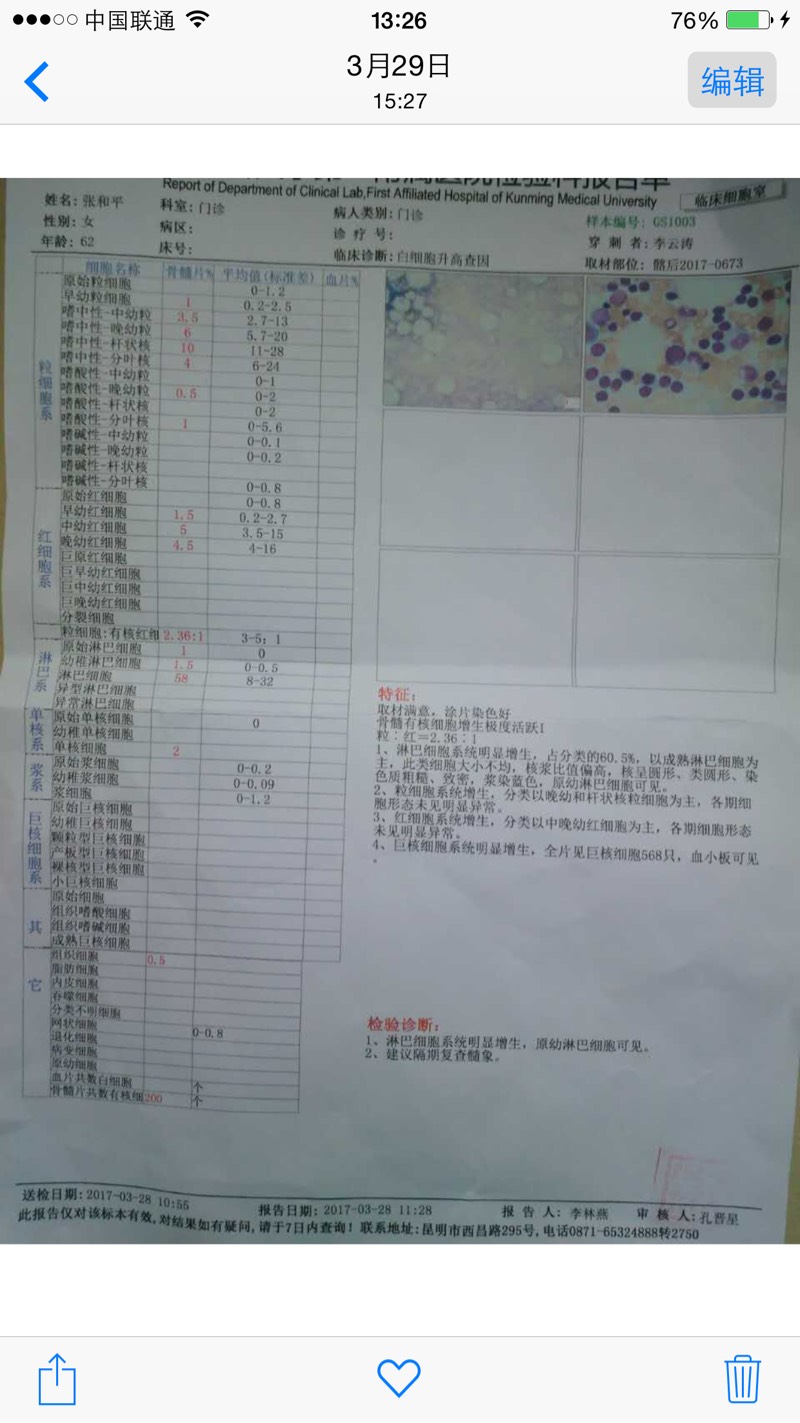 中国联通
13:26
76%
3月29日
15:27
编辑
Report of Department of Clinical Lab,First Affiliated Hospital of Kunming Medical University
姓名: 张和平
科室: 门诊
病人类别: 门诊
临床细胞室
性别: 女
病区:
诊 疗 号:
样本编号: GS1003
年龄: 62
床号:
临床诊断: 白细胞升高查因
穿 刺 者: 李云涛
取材部位: 髂后2017-0673
细胞名称 骨髓片% 平均值(标准差) 血片%
粒细胞系
原始粒细胞 0-1.2
早幼粒细胞 1 0.2-2.5
嗜中性-中幼粒 3.5 2.7-13
嗜中性-晚幼粒 6 5.7-20
嗜中性-杆状核 10 11-28
嗜中性-分叶核 4 6-24
嗜酸性-中幼粒 0-1
嗜酸性-晚幼粒 0.5 0-2
嗜酸性-杆状核 0-2
嗜酸性-分叶核 1 0-5.6
嗜碱性-中幼粒 0-0.1
嗜碱性-晚幼粒 0-0.2
嗜碱性-杆状核
嗜碱性-分叶核 0-0.8
红细胞系
原始红细胞 0-0.8
早幼红细胞 1.5 0.2-2.7
中幼红细胞 5 3.5-15
晚幼红细胞 4.5 4-16
巨原红细胞
巨早幼红细胞
巨中幼红细胞
巨晚幼红细胞
分裂细胞
粒细胞:有核红细 2.36:1 3-5: 1
淋巴系
原始淋巴细胞 1 0
幼稚淋巴细胞 1.5 0-0.5
淋巴细胞 58 8-32
异型淋巴细胞
异常淋巴细胞
单核系
原始单核细胞 0
幼稚单核细胞
单核细胞 2
浆系
原始浆细胞 0-0.2
幼稚浆细胞 0-0.09
浆细胞 0-1.2
巨核细胞系
原始巨核细胞
幼稚巨核细胞
颗粒型巨核细胞
产板型巨核细胞
裸核型巨核细胞
小巨核细胞
其它
原始细胞
组织嗜酸细胞
组织嗜碱细胞
成熟巨核细胞
组织细胞 0.5
脂肪细胞
内皮细胞
吞噬细胞
分类不明细胞
网状细胞 0-0.8
退化细胞
病变细胞
原幼细胞
血片共数白细胞 个
骨髓片共数有核细 200 个
特征:
取材满意, 涂片染色好
骨髓有核细胞增生极度活跃I
粒: 红=2.36: 1
1、淋巴细胞系统明显增生, 占分类的60.5%, 以成熟淋巴细胞为
主, 此类细胞大小不均, 核浆比值偏高, 核呈圆形、类圆形、染
色质粗糙、致密, 浆染蓝色, 原幼淋巴细胞可见。
2、粒细胞系统增生, 分类以晚幼和杆状核粒细胞为主, 各期细
胞形态未见明显异常。
3、红细胞系统增生, 分类以中晚幼红细胞为主, 各期细胞形态
未见明显异常。
4、巨核细胞系统明显增生, 全片见巨核细胞568只, 血小板可见
。
检验诊断:
1、淋巴细胞系统明显增生, 原幼淋巴细胞可见。
2、建议隔期复查髓象。
送检日期: 2017-03-28 10:55
报告日期: 2017-03-28 11:28
报 告 人: 李林燕
审 核 人: 孔晋星
此报告仅对该标本有效, 对结果如有疑问, 请于7日内查询! 联系地址: 昆明市西昌路295号, 电话0871-65324888转2750